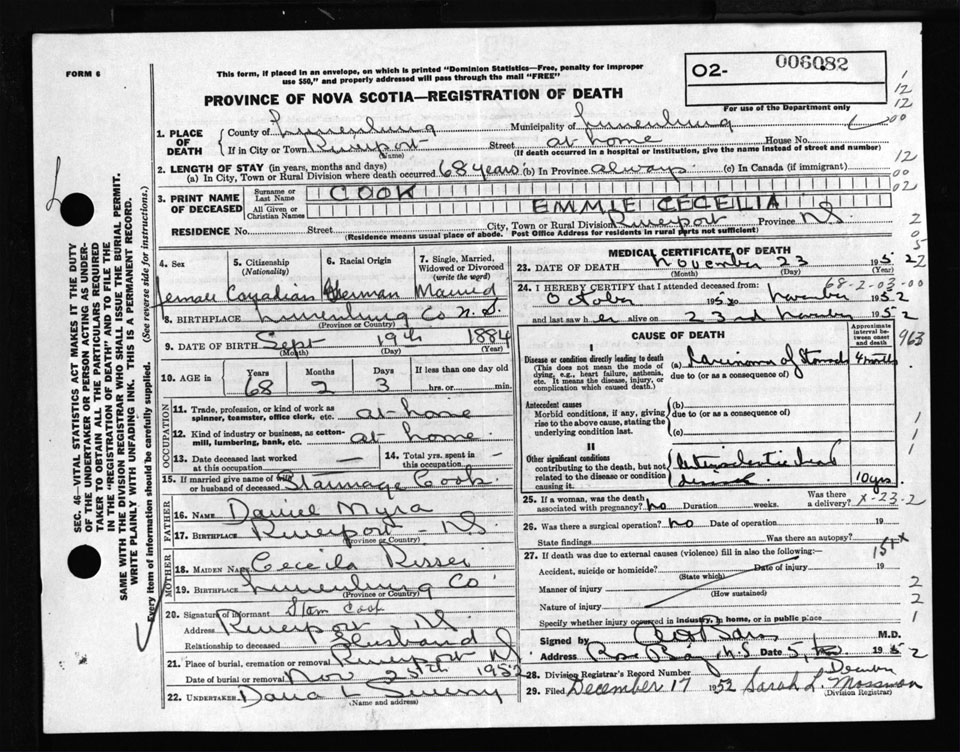 FORM 6
This form, if placed in an envelope, on which is printed "Dominion Statistics—Free, penalty for improper
use $50," and properly addressed will pass through the mail "FREE"
02- 006082
For use of the Department only
PROVINCE OF NOVA SCOTIA—REGISTRATION OF DEATH
1. PLACE OF DEATH
County of Lunenburg Municipality of Lunenburg
If in City or Town Riverport Street at home House No.
(Name) (If death occurred in a hospital or institution, give the name instead of street and number)
2. LENGTH OF STAY (in years, months and days)
(a) In City, Town or Rural Division where death occurred 68 years (b) In Province always (c) In Canada (if immigrant)
3. PRINT NAME OF DECEASED
Surname or Last Name COOK
All Given or Christian Names EMMIE CECELIA
RESIDENCE No. Street City, Town or Rural Division Riverport Province N.S.
(Residence means usual place of abode. Post Office Address for residents in rural parts not sufficient)
4. Sex
5. Citizenship (Nationality)
6. Racial Origin
7. Single, Married, Widowed or Divorced (write the word)
female Canadian German Married
8. BIRTHPLACE Lunenburg Co N.S.
(Province or Country)
9. DATE OF BIRTH Sept 19th 1884
(Month) (Day) (Year)
10. AGE in Years Months Days If less than one day old
68 2 3 hrs. or min.
OCCUPATION
11. Trade, profession, or kind of work as spinner, teamster, office clerk, etc. at home
12. Kind of industry or business, as cotton-mill, lumbering, bank, etc. at home
13. Date deceased last worked at this occupation — 14. Total yrs. spent in this occupation —
15. If married give name of wife or husband of deceased Cook
FATHER
16. NAME Daniel Myra
17. BIRTHPLACE Riverport N.S.
(Province or Country)
MOTHER
18. MAIDEN NAME Cecelia Risser
19. BIRTHPLACE Lunenburg Co
(Province or Country)
20. Signature of informant Stam Cook
Address Riverport N.S.
Relationship to deceased Husband
21. Place of burial, cremation or removal Riverport N.S.
Date of burial or removal Nov 25th 1952
22. UNDERTAKER
(Name and address)
MEDICAL CERTIFICATE OF DEATH
23. DATE OF DEATH November 23 1952
(Month) (Day) (Year)
68-2-03-00
24. I HEREBY CERTIFY that I attended deceased from:
October 1952 to November 1952
and last saw her alive on 23rd November 1952
CAUSE OF DEATH
Approximate interval between onset and death
963
I
Disease or condition directly leading to death (a) Carcinoma of Stomach 4 months
(This does not mean the mode of dying, e.g., heart failure, asthenia, etc. It means the disease, injury, or complication which caused death.)
due to (or as a consequence of)
Antecedent causes
Morbid conditions, if any, giving rise to the above cause, stating the underlying condition last.
(b)
due to (or as a consequence of)
(c)
II
Other significant conditions
contributing to the death, but not related to the disease or condition causing it.
Arteriosclerotic heart disease 10 yrs.
25. If a woman, was the death associated with pregnancy? no Duration weeks. Was there a delivery?
x-23-2
26. Was there a surgical operation? no Date of operation 19
State findings Was there an autopsy?
151x
27. If death was due to external causes (violence) fill in also the following:—
Accident, suicide or homicide? Date of injury 19
(State which)
Manner of injury
(How sustained)
Nature of injury
Specify whether injury occurred in industry, in home, or in public place
Signed by M.D.
Address Rose Bay, N.S. Date 5, 1952
28. Division Registrar's Record Number
29. Filed December 17 1952 Sarah L. Mossman
(Division Registrar)
SEC. 46—VITAL STATISTICS ACT MAKES IT THE DUTY
OF THE UNDERTAKER OR PERSON ACTING AS UNDER-
TAKER TO OBTAIN ALL THE PARTICULARS REQUIRED
IN THE "REGISTRATION OF DEATH" AND TO FILE THE
SAME WITH THE DIVISION REGISTRAR WHO SHALL ISSUE THE BURIAL PERMIT.
WRITE PLAINLY WITH UNFADING INK. THIS IS A PERMANENT RECORD.
Every item of information should be carefully supplied. (See reverse side for instructions.)